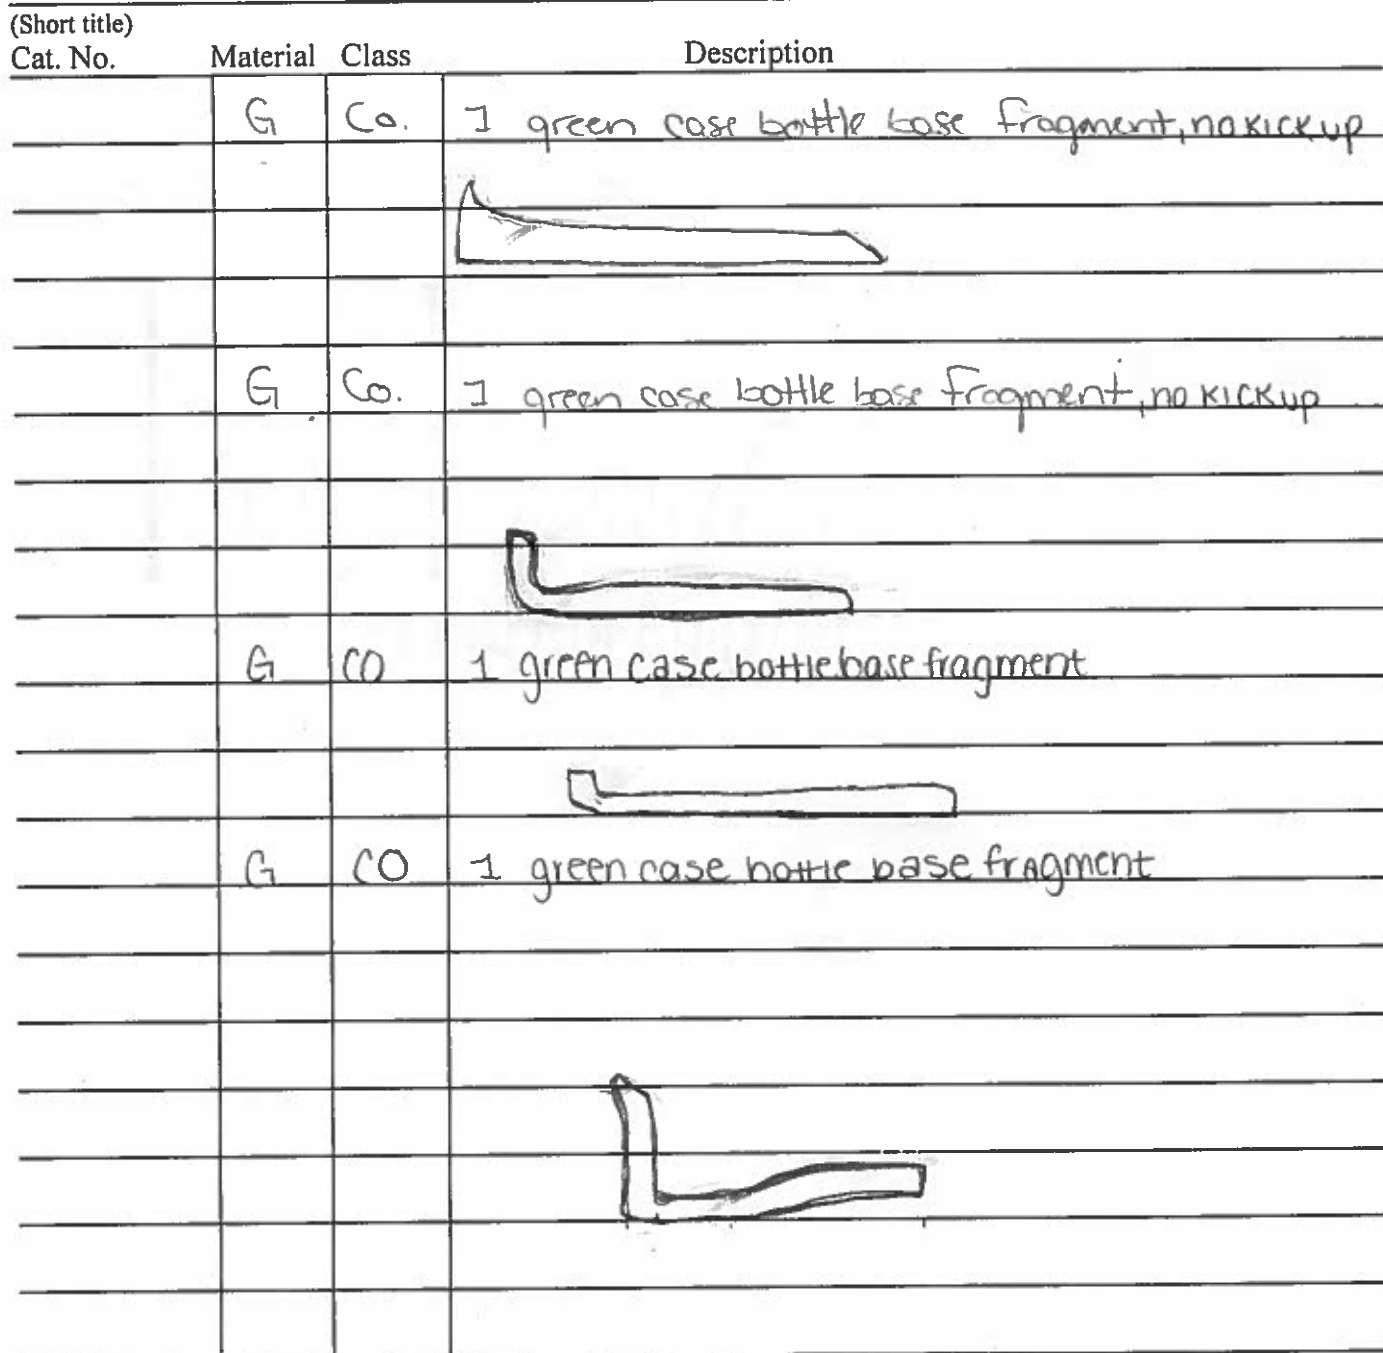 (Short title)
Cat. No. Material Class Description
G Co. 1 green case bottle base fragment, no kick up
G Co. 1 green case bottle base fragment, no kick up
G CO 1 green case bottle base fragment
G CO 1 green case bottle base fragment